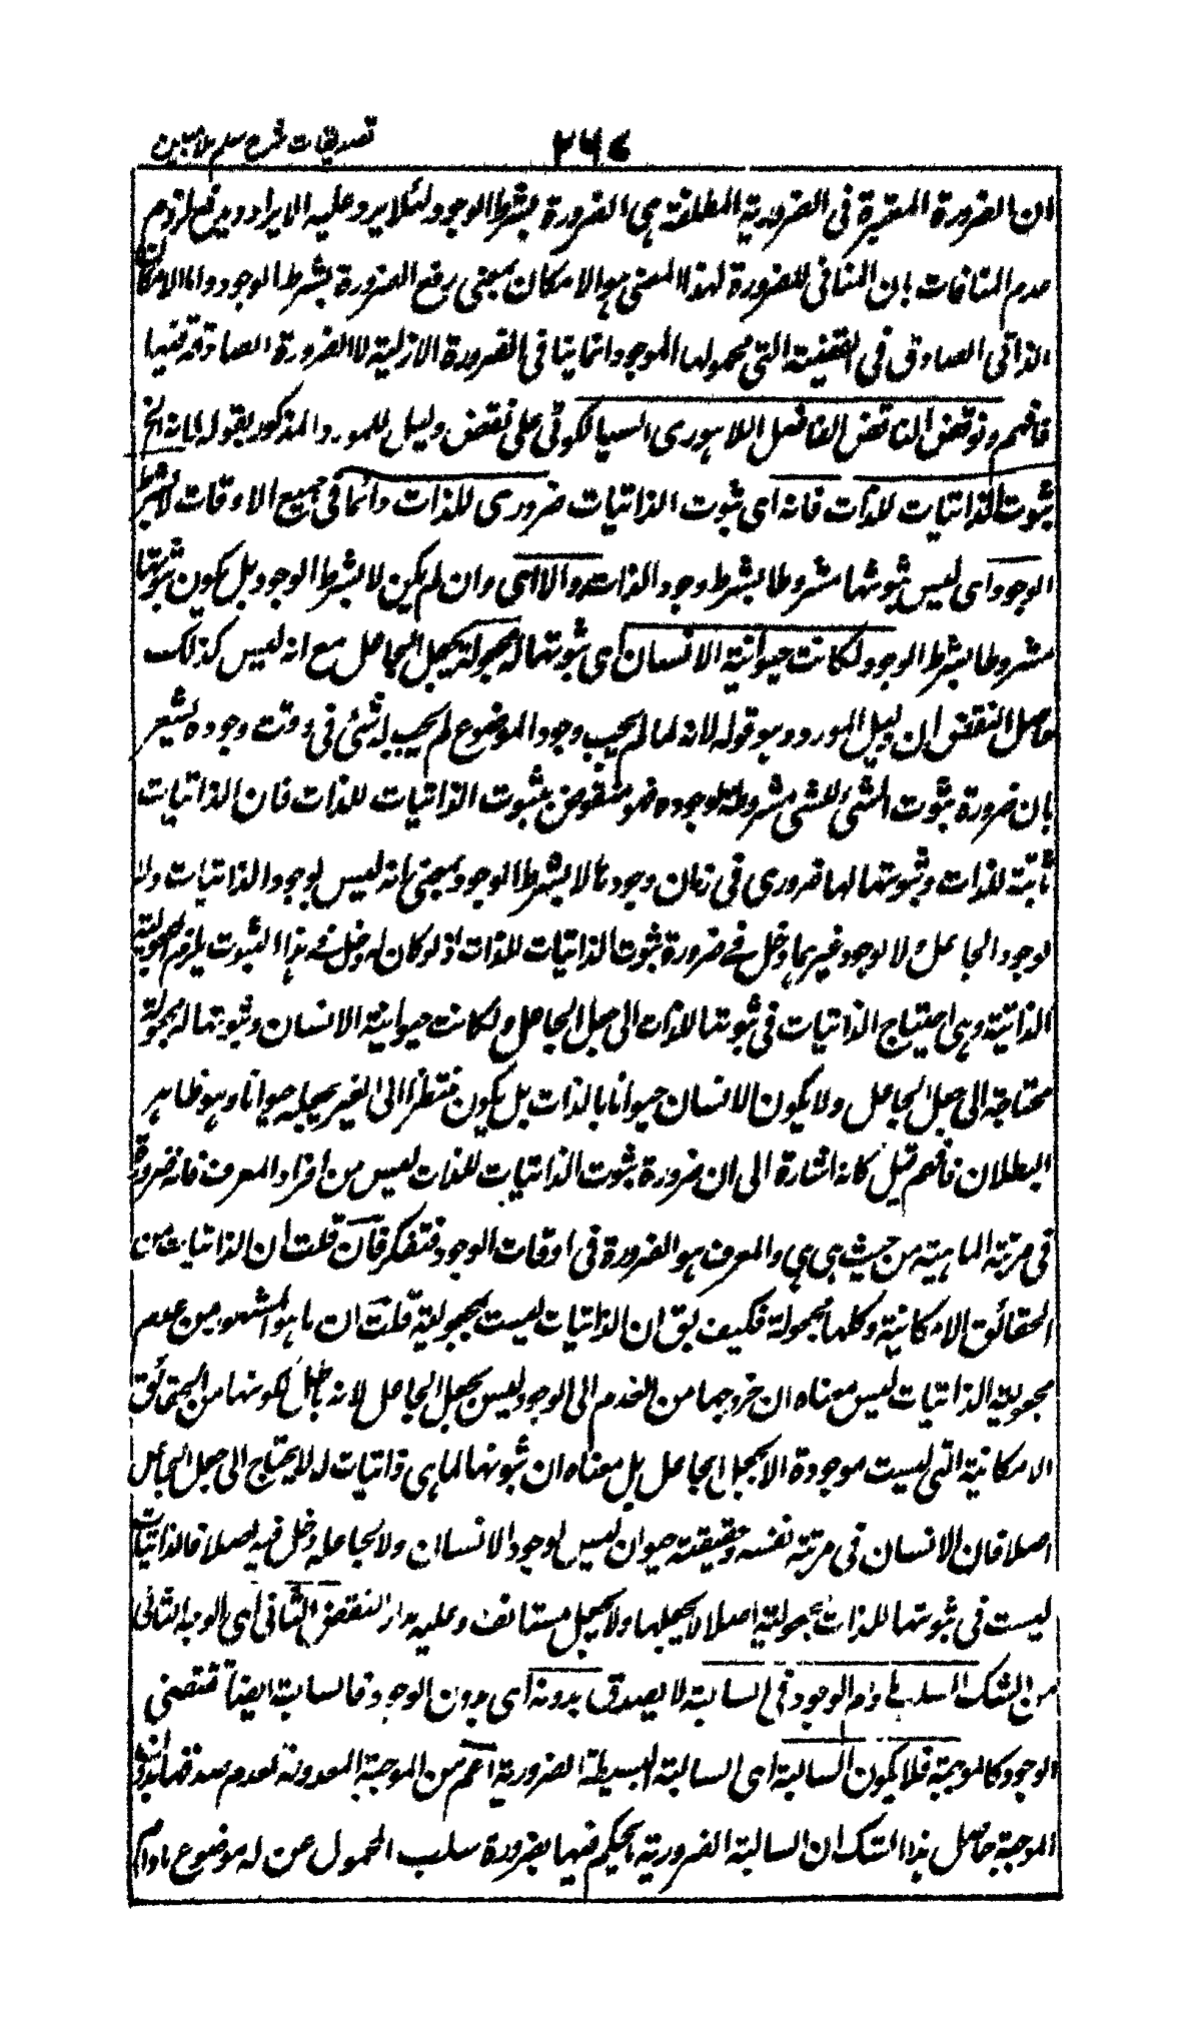 تصديقات شرح سلم ملا مبين
٢٦٧
ان الضرورة المعتبرة فى الضرورية المطلقة هى الضرورة بشرط الوجود لئلا يرد عليه الايراد ويدفع لزوم
عدم المنافات بان المنافى للضرورة لهذا المعنى هو الامكان بمعنى رفع الضرورة بشرط الوجود واما الامكان
الذاتى الصادق فى القضية التى محمولها الموجود انما ينافى الضرورة الازلية لا الضرورة الصادقة فيها
فافهم ونوقض الناقض الفاضل اللاهورى السيالكوٹى على نقض دليل للمورد المذكور بقوله لما لم الخ
ثبوت الذاتيات للذات فانه اى ثبوت الذاتيات ضرورى للذات دائما فى جميع الاوقات لا بشرط
الوجود اى ليس ثبوتها مشروطا بشرط وجود الذات والا اى وان لم يكن لا بشرط الوجود بل يكون ثبوتها
مشروطا بشرط الوجود لكانت حيوانية الانسان اى ثبوتها له مجعولة بجعل الجاعل مع انه ليس كذلك
حاصل النقض ان دليل المورد وهو قوله لانه لما لم يجب وجود الموضوع لم يجب له شئ فى وقت وجوده يشعر
بان ضرورة ثبوت الشئ للشئ مشروطة بوجوده فهو منقوض بثبوت الذاتيات للذات فان الذاتيات
ثابتة للذات وثبوتها لها ضرورى فى زمان وجودها لا بشرط الوجود بمعنى انه ليس لوجود الذاتيات ولا
لوجود الجاعل ولا لوجود غيرهما دخل فى ضرورة ثبوت الذاتيات للذات اذ لو كان له دخل فى هذا الثبوت يلزم المجعولية
الذاتية وهى احتياج الذاتيات فى ثبوتها للذات الى جعل الجاعل ولكانت حيوانية الانسان وثبوتها له مجعولة
محتاجة الى جعل الجاعل ولا يكون الانسان حيوانا بالذات بل يكون منتظرا الى الغير يجعله حيوانا وهو ظاهر
البطلان فافهم قيل كانه اشارة الى ان ضرورة ثبوت الذاتيات للذات ليس من افراد المعرف فانه ضرورة
فى مرتبة الماهية من حيث هى هى والمعرف هو الضرورة فى اوقات الوجود فتفكر فان قلت ان الذاتيات من
الحقائق الامكانية وكلها مجعولة فكيف يق ان الذاتيات ليست بمجعولية قلت ان ما هو المشهور من عدم
مجعولية الذاتيات ليس معناه ان خروجها من العدم الى الوجود ليس بجعل الجاعل لانه باطل لكونها من الحقائق
الامكانية التى ليست موجودة الا بجعل الجاعل بل معناه ان ثبوتها لما هى ذاتيات له لا يحتاج الى جعل الجاعل
اصلا فان الانسان فى مرتبة نفسه وحقيقته حيوان ليس لوجود الانسان ولا لجاعله دخل فيه اصلا فالذاتيات
ليست فى ثبوتها للذات بمجعولية اصلا لا بجعلها ولا بجعل مستانف وعليه مدار النقض الثانى اى الوجه الثانى
من الشك السلب مادام الوجود فى السالبة لا يصدق بدونه اى بدون الوجود فالسالبة ايضا تقتضى
الوجود كالموجبة فلا يكون السالبة اى السالبة البسيطة الضرورية اعم من الموجبة المعدولة لعدم صدقها بدون
الموجبة حاصل هذا الشك ان السالبة الضرورية الحكم فيها بضرورة سلب المحمول عن له موضوع مادام